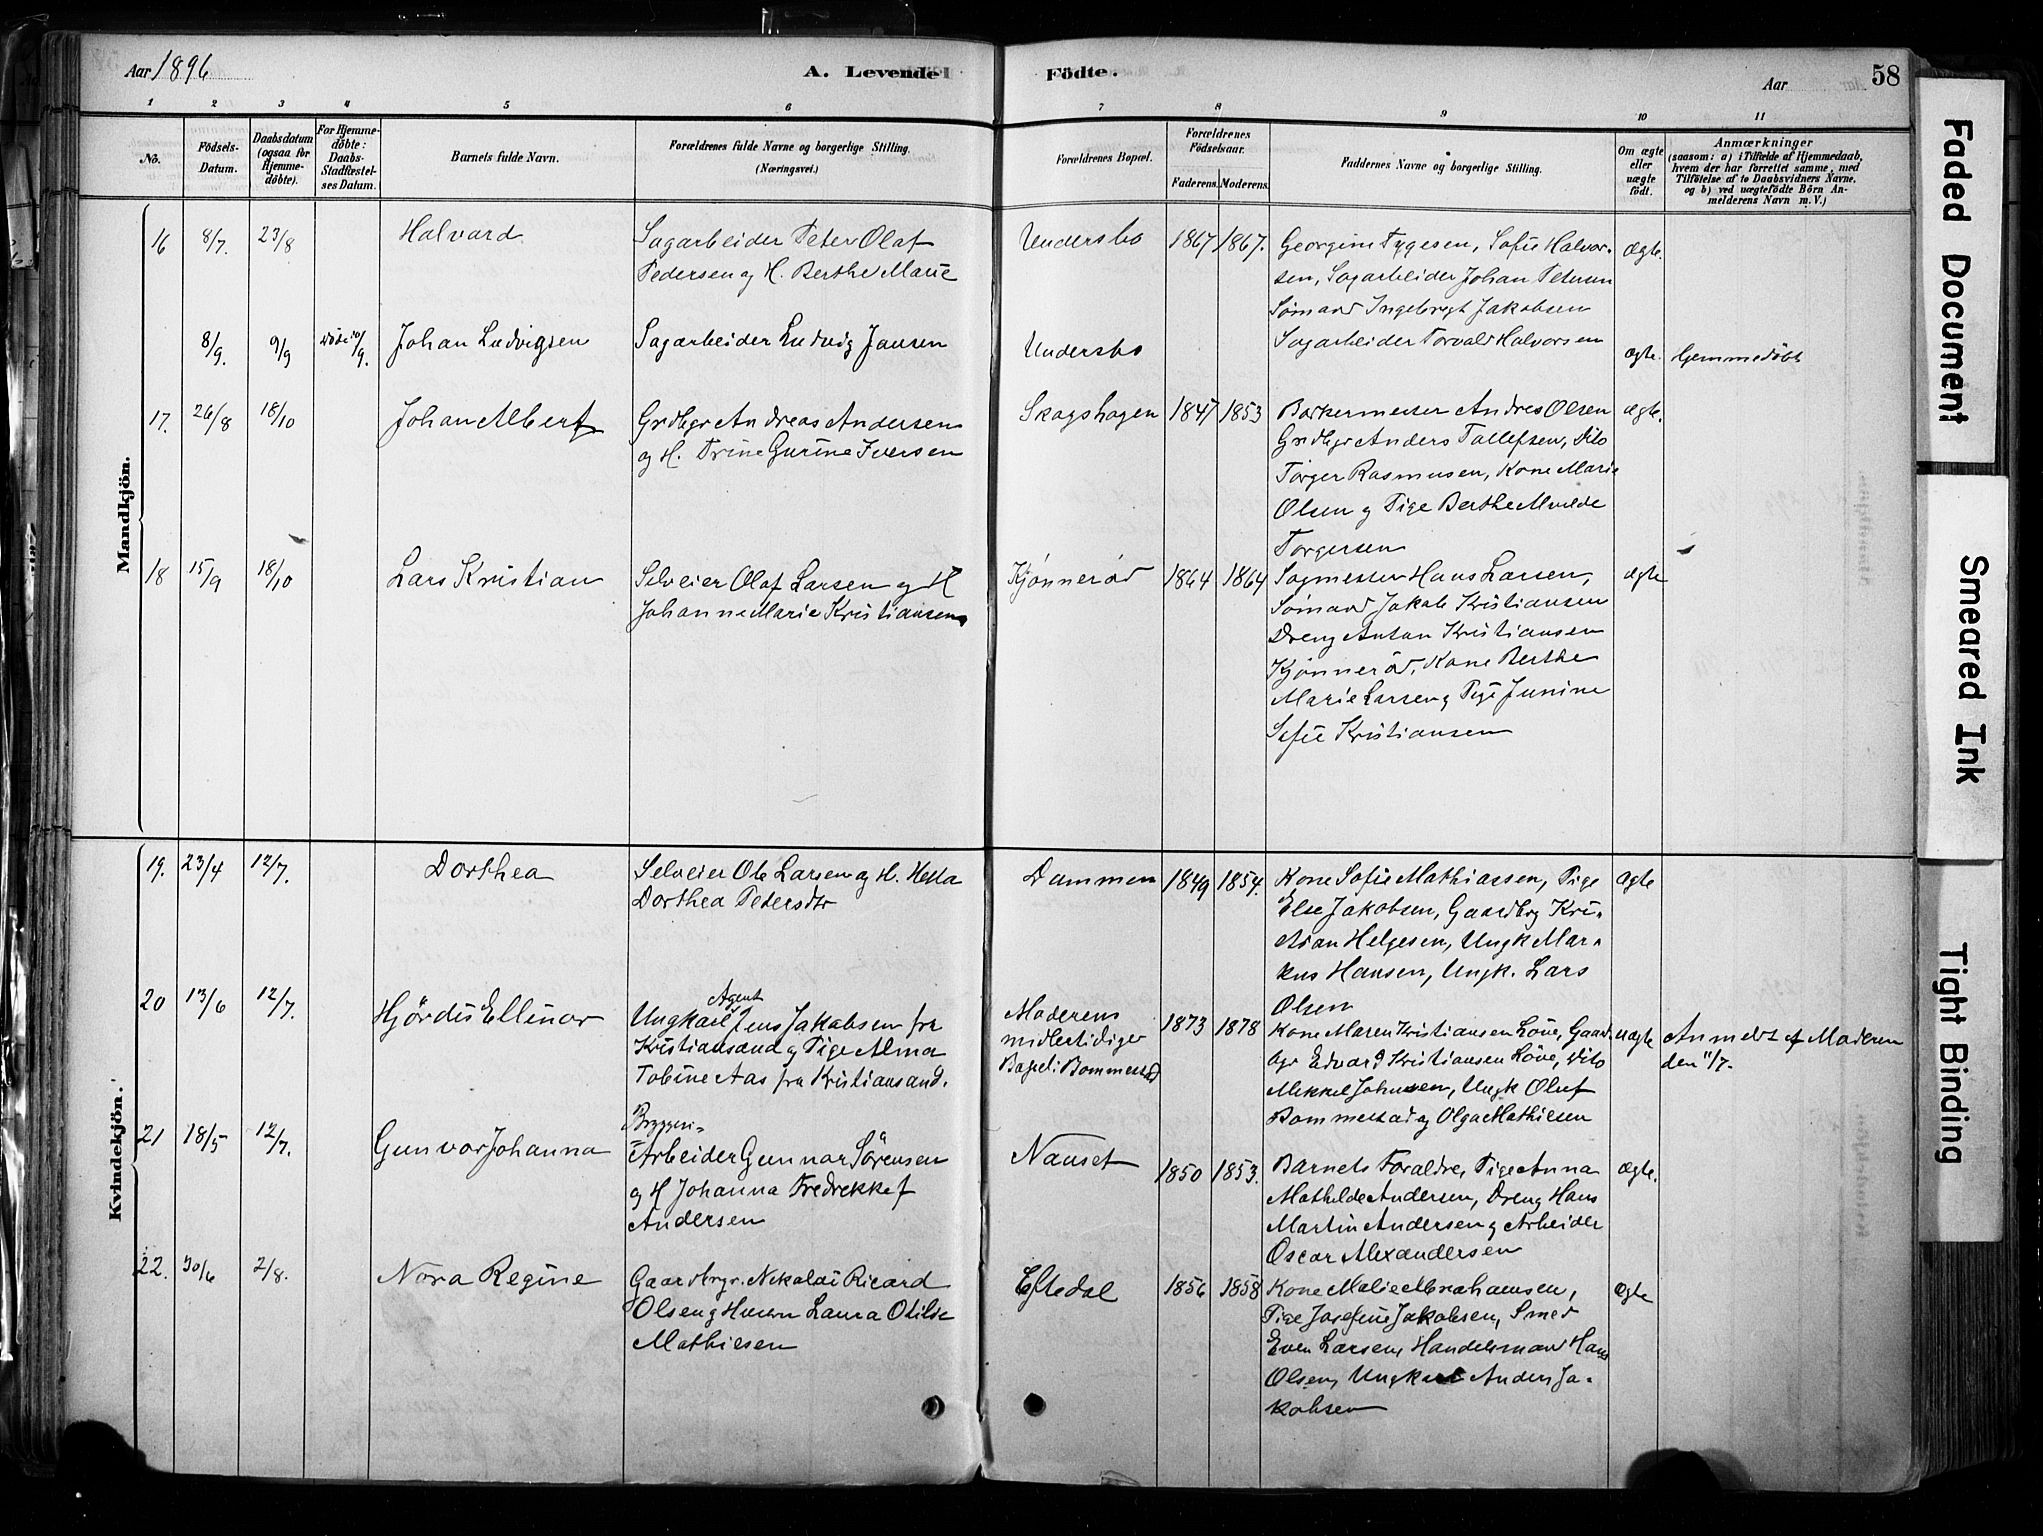 Aar 1896
A. Levende
Födte.
Aar
58
1 2 3 4 5 6 7 8 9 10 11
No.
Födsels-
Datum.
Daabsdatum
(ogsaa for
Hjemme-
döbte).
For Hjemme-
döbte:
Daabs-
Stadfæstel-
ses Datum.
Barnets fulde Navn.
Forældrenes fulde Navne og borgerlige Stilling.
(Næringsvei.)
Forældrenes Bopæl.
Forældrenes
Födselsaar.
Faderens. Moderens.
Faddernes Navne og borgerlige Stilling.
Om ægte
eller
uægte
födt.
Anmærkninger
(saasom: a) i Tilfælde af Hjemmedaab,
hvem der har forrettet samme, med
Tilföielse af to Daabsvidners Navne,
og b) ved uægtefödte Börn An-
melderens Navn m. V.)
Mandkjön.
16
8/7.
23/8
Halvard
Sagarbeider Peter Olaf
Pedersen og H. Berthe Marie
Undersbo
1867
1867.
Georgine Tygesen, Sofie Halvor-
sen, Sagarbeider Johan Petersen
Sømand Ingebregt Jakobsen
Sagarbeider Torvald Halvorsen
ægte.
8/9.
9/9
Döde 10/9.
Johan Ludvigsen
Sagarbeider Ludvig Jansen
Undersbo
ægte.
Hjemmedöbt
17.
26/8
18/10
Johan Albert
Grdbgr Andreas Andersen
og H. Trine Gurine Iversen
Skogshagen
1847
1853
Barkermester Andres Olsen
Grdbgr Anders Tallefsen, Dito
Törger Rasmusen, Kone Marie
Olsen og Pige Berthe
Torgersen
ægte.
18
15/9
18/10
Lars Kristian
Selveier Olaf Larsen og H
Johanne Marie Kristiansen
Kjønneröd
1864
1864
Sagmester Hans Larsen,
Sömand Jakob Kristiansen
Dreng Anton Kristiansen
Kjønneröd, Kone Berthe
Marie Larsen og Pige Junine
Sofie Kristiansen
ægte
Kvindekjön.
19.
23/4
12/7.
Dorthea
Selveier Ole Larsen og H. Hella
Dorthea Pedersdtr
Dammen
1849
1854.
Kone Sofie Mathiassen, Pige
Else Jakobsen, Gaardbrg Kri-
stian Helgesen, Ungk Mar-
kus Hansen, Ungk. Lars
Olsen
ægte
20
13/6
12/7.
Hjördis Ellinor
Agent
Ungkarl Jens Jakobsen fra
Kristiansand og Pige Alma
Tobine Aas fra Kristiansand.
Moderens
midlertidige
Bopæl: Bommestad
1873
1878
Kone Maren Kristiansen Löve, Gaard
bgr Edvard Kristiansen Löve, Dito
Mikkel Johnsen, Ungk Oluf
Bommestad og Olga Mathiesen
uægte
Anmeldt af Moderen
den 11/7.
21
18/5
12/7.
Gunvor Johanna
Bryggeri-
Arbeider Gunnar Sörensen
og H Johanna Fredrekke f
Andersen
Nanset
1850
1853.
Barnets Foraldre, Pige Anna
Mathilde Andersen, Dreng Hans
Martin Andersen og Arbeider
Oscar Alexandersen
ægte.
22.
30/6
2/8.
Nora Regine
Gaardbrgr. Nikolai Ricard
Olsen og Hustru Laura Otilie
Mathiesen
Eftedal
1856
1858
Kone Malie Abrahamsen,
Pige Josefine Jakobsen, Smed
Even Larsen, Handelsmand Hans
Olsen, Ungkarl Anders Ja-
kobsen
ægte
Faded Document
Smeared Ink
Tight Binding